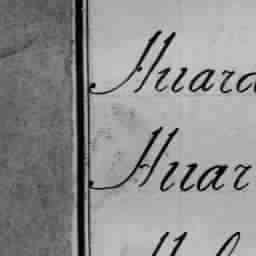 Huard
Huar